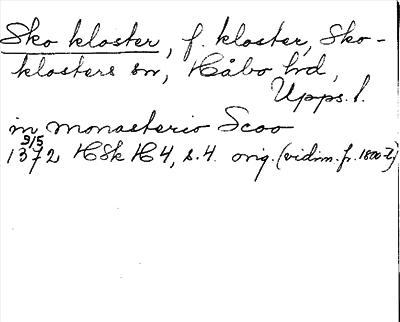 Sko kloster, f. kloster, Sko-
klosters sn, Håbo hd,
Upps. l.
in monasterio Scoo
9/5
1372 HSk H4, s. 4. orig. (vidim. fr. 1800-t)